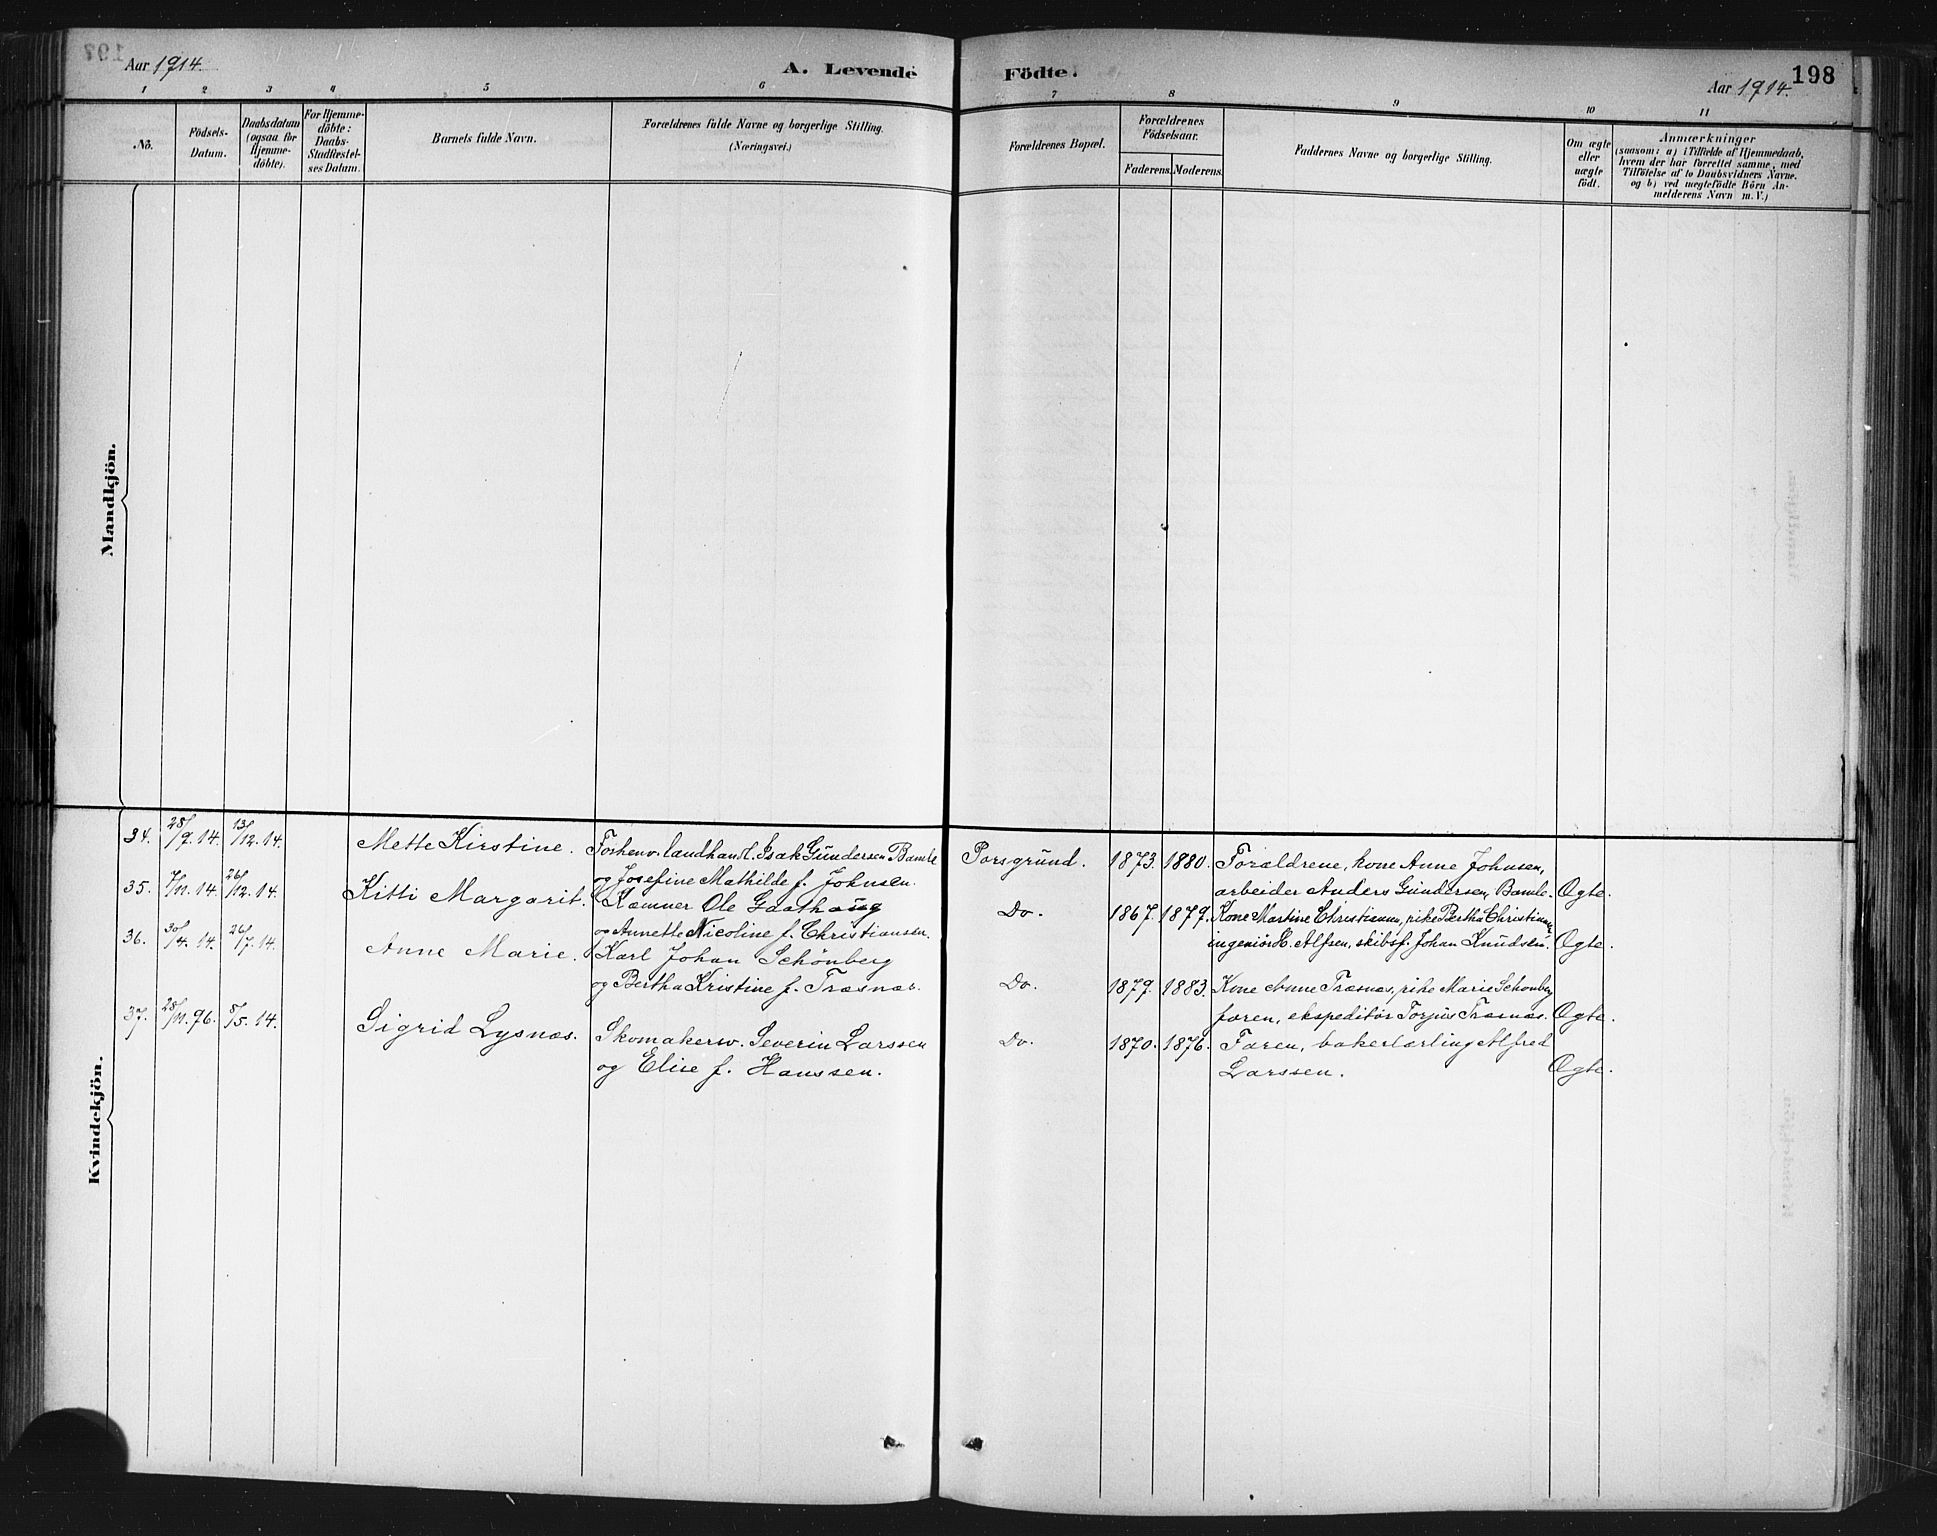 Aar 1914.
A. Levende Födte.
198
Aar 1914.
1 2 3 4 5 6 7 8 9 10 11
No.
Födsels-
Datum.
Daabsdatum
(ogsaa for
Hjemme-
döbte).
For Hjemme-
döbte:
Daabs-
Stadfæstel-
ses Datum.
Barnets fulde Navn.
Forældrenes fulde Navne og borgerlige Stilling.
(Næringsvei.)
Forældrenes Bopæl.
Forældrenes
Födselsaar.
Faderens. Moderens.
Faddernes Navne og borgerlige Stilling.
Om ægte
eller
uægte
födt.
Anmærkninger
(saasom: a) i Tilfælde af Hjemmedaab,
hvem der har forrettet samme, med
Tilföielse af to Daabsvidners Navne.
og b) ved uægtefödte Börn An-
melderens Navn m. V.)
Mandkjön.
Kvindekjön.
34. 28/9. 14. 13/12. 14. Mette Kirstine. Forhenv. landhandl. Isak Gundersen Bamble Porsgrund. 1873. 1880. Forældrene, kone Anne Johnsen,
og Josefine Mathilde f. Johnsen. arbeider Anders Gundersen, Bamle. Ægte.
35. 7/11. 14 26/12. 14 Kitti Margarit. Kæmner Ole Gaathaug Do. 1867. 1879. Kone Martine Christiansen, pike Bertha Christiansen
og Annette Nicoline f. Christiansen. ingeniör H. Alfsen, skibsf. Johan Knudsen. Ægte.
36. 30/4. 14. 26/7. 14. Anne Marie. Karl Johan Schönberg
og Bertha Kristine f. Træsnæs. Do. 1879. 1883. Kone Anne Træsnæs, pike Marie Schönberg
faren, ekspeditör Torjus Træsnæs. Ægte.
37. 28/11. 96. 8/5. 14. Sigrid Lysnæs. Skomakersv. Severin Larssen Do. 1870. 1876. Faren, bakerlærling Alfred
og Elise f. Hanssen. Larssen. Ægte.